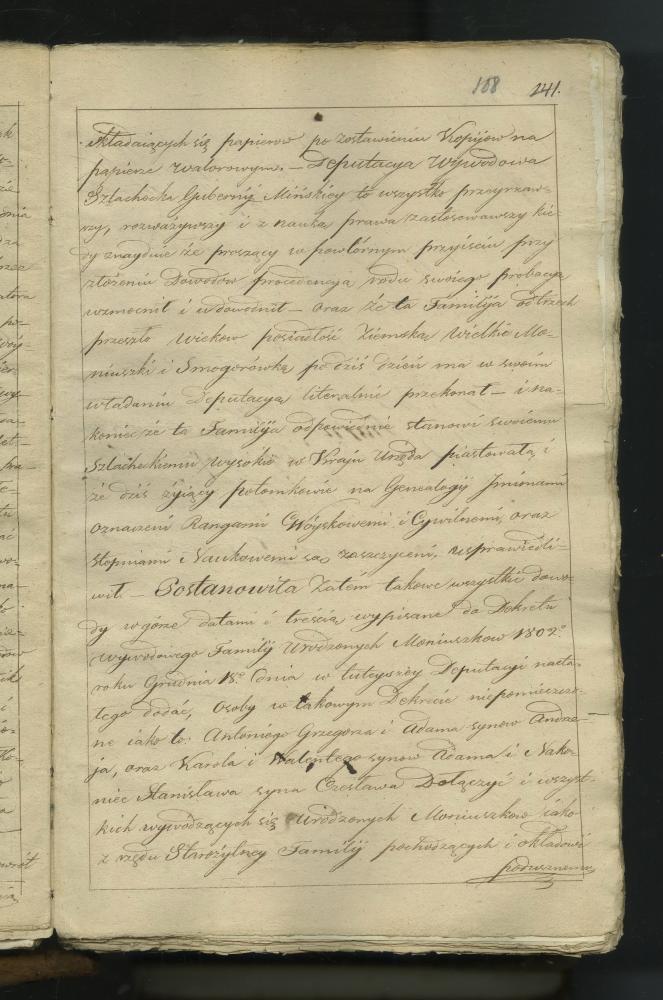 108 241.
składaiących się papierow po zostawieniu Kopijow na
papierze walorowym. — Deputacya Wywodowa
Szlachecka Gubernij Mińskiey to wszystko przeyrzaw-
szy, rozważywszy i z nauką prawa zastosowawszy kie-
dy znayduie że proszący w powtórnym przyiściu przy
złożeniu Dowodów procedencyą rodu swoiego probacyą
wzmocnił i udowodnił — oraz że ta Familija od trzech
przeszło wiekow posiadłość Ziemską Wielkie Mo-
niuszki i Smogorówkę po dziś dzień ma w swoim
władaniu Deputacyą literalnie przekonał — i na-
koniec że ta Familija odpowiednie stanowi swoiemu
Szlacheckiemu wysokie w Kraju Urzęda piastowała, i
że dziś żyiący potomkowie na Genealogij Jmionami
oznaczeni Rangami Wóyskowemi i Cywilnemi, oraz
stopniami Naukowemi są zaszczyceni, usprawiedli-
wił. — Postanowiła Zatém takowe wszystkie dowo-
dy w górze datami i treścią wypisane do Dekretu
wywodowego Familij Urodzonych Moniuszkow 1802º
roku Grudnia 18º dnia w tuteyszéy Deputacyi nasta-
łego dodać, Osoby w takowym Dekrecie niepomieszczo-
ne iako to: Antoniego Grzegorza i Adama synow Andrze-
ja, oraz Karola i Walentego synow Adama i Nako-
niec Stanisława syna Czesława Dołączyć i wszyst-
kich wywodzących się Urodzonych Moniuszkow iako
z rzędu Starożytney Familij pochodzących i okładowi